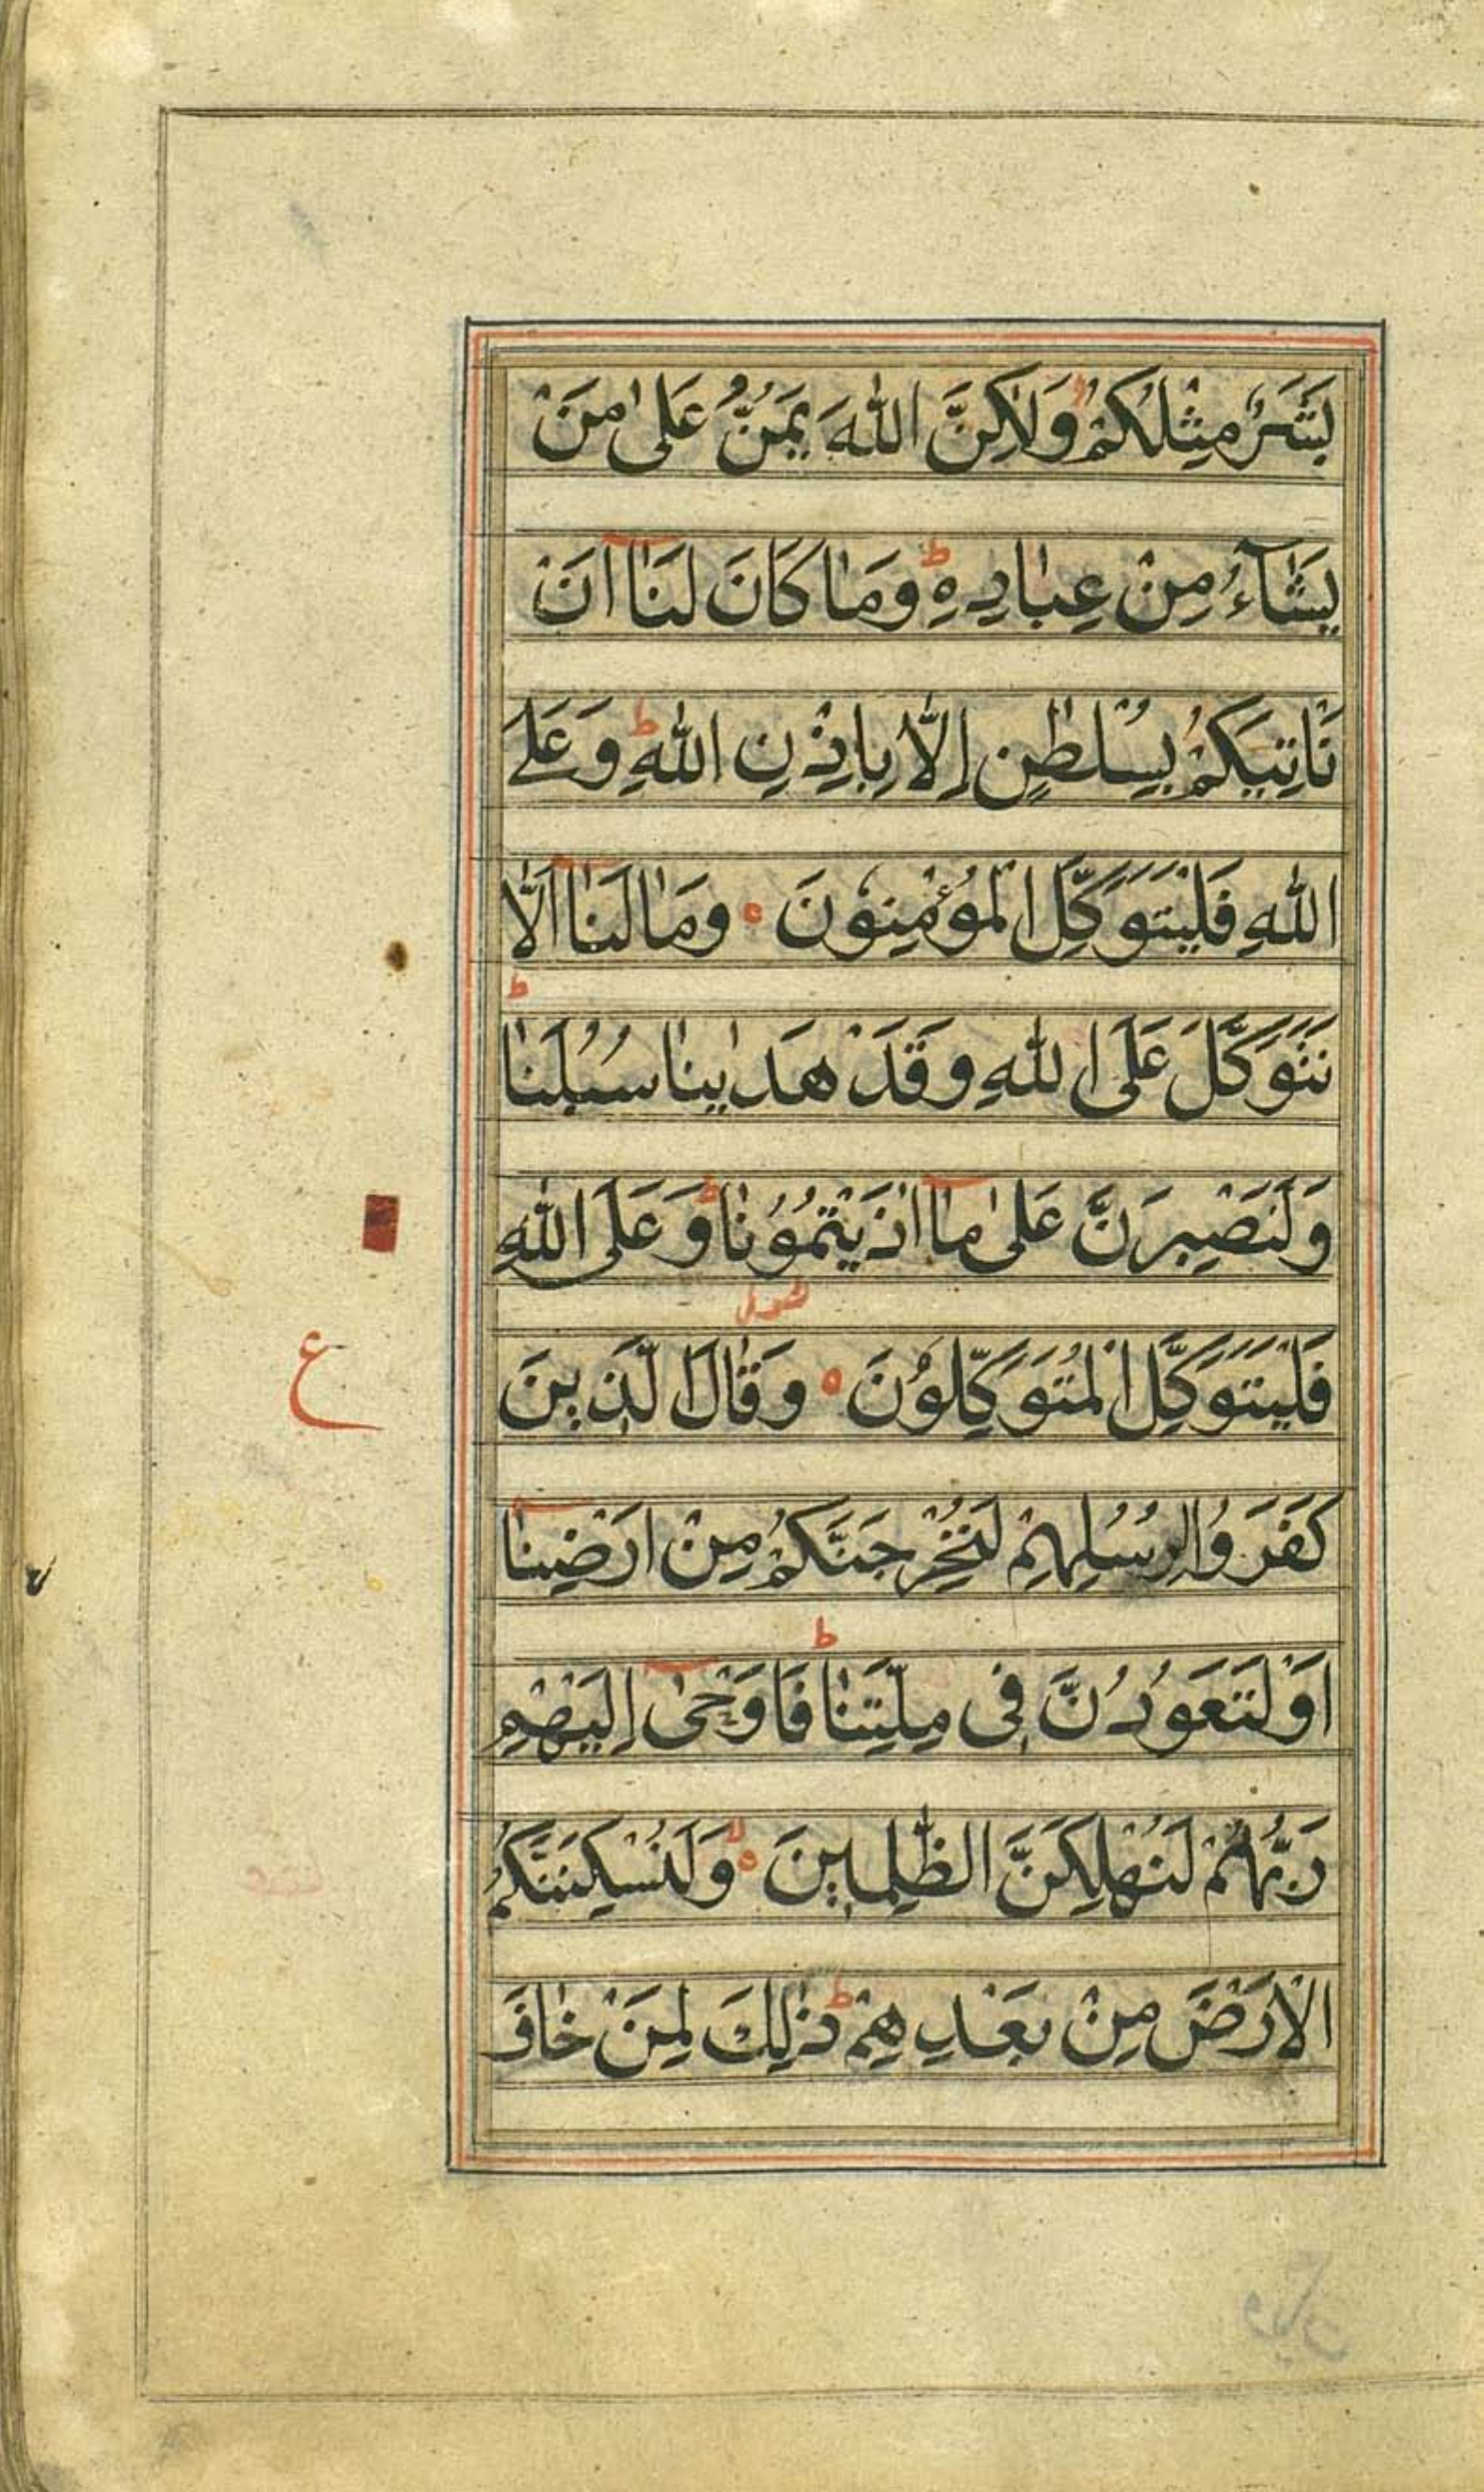 بَشَرٌ مِثْلُكُمْ وَلٰكِنَّ اللّٰهَ يَمُنُّ عَلٰى مَنْ
يَشَآءُ مِنْ عِبَادِهٖ ط وَمَا كَانَ لَنَآ اَنْ
نَاْتِيَكُمْ بِسُلْطٰنٍ اِلَّا بِاِذْنِ اللّٰهِ ط وَعَلَى
اللّٰهِ فَلْيَتَوَكَّلِ الْمُؤْمِنُوْنَ ه وَمَا لَنَآ اَلَّا
نَتَوَكَّلَ عَلَى اللّٰهِ وَقَدْ هَدٰينَا سُبُلَنَا ط
وَلَنَصْبِرَنَّ عَلٰى مَآ اٰذَيْتُمُوْنَا ط وَعَلَى اللّٰهِ
فَلْيَتَوَكَّلِ الْمُتَوَكِّلُوْنَ ه وَقَالَ الَّذِيْنَ
ع
كَفَرُوْا لِرُسُلِهِمْ لَنُخْرِجَنَّكُمْ مِنْ اَرْضِنَآ
اَوْ لَتَعُوْدُنَّ فِى مِلَّتِنَا ط فَاَوْحٰٓى اِلَيْهِمْ
رَبُّهُمْ لَنُهْلِكَنَّ الظّٰلِمِيْنَ ه وَلَنُسْكِنَنَّكُمُ
الْاَرْضَ مِنْ بَعْدِهِمْ ط ذٰلِكَ لِمَنْ خَافَ